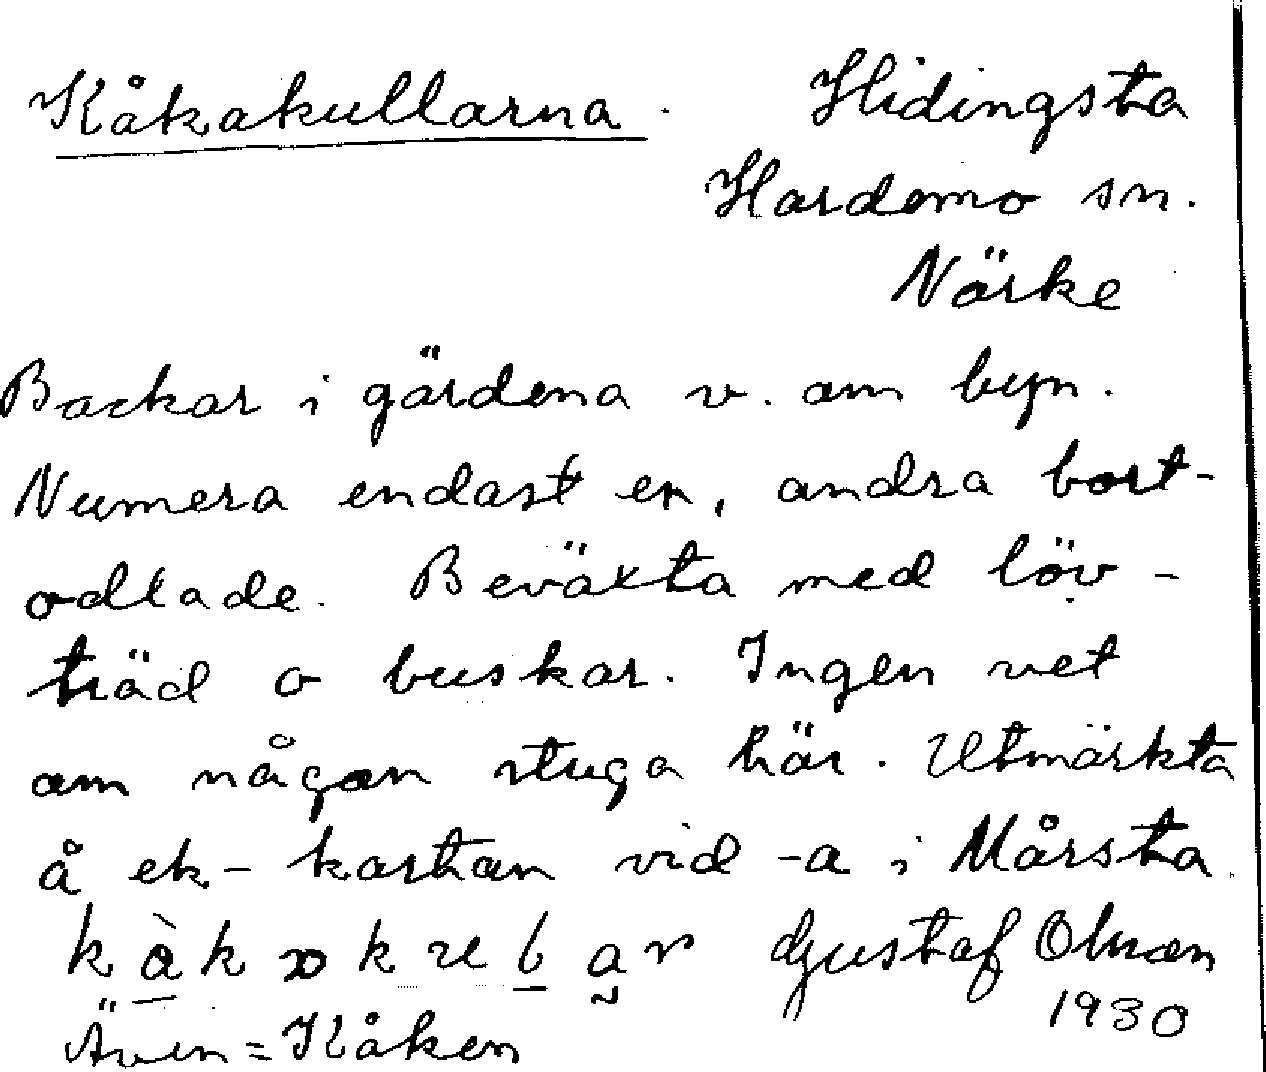 Kåkakullarna. Hidingsta
Hardemo sn.
Närke
Backar i gärdena v. om byn.
Numera endast en, andra bort-
odlade. Beväxta med löv-
träd o buskar. Ingen vet
om någon stuga här. Utmärkta
å ek-kartan vid -a i Mårsta
Gustaf Olson
1930
Även = Kåken